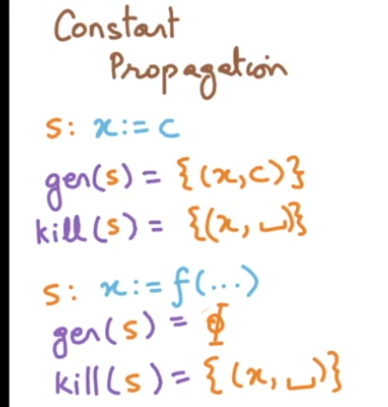 Constant
Propagation
s: x:= c
gen(s) = {(x,c)}
kill(s) = {(x, ⌴)}
s: x:= f(...)
gen(s) = ϕ
kill(s) = {(x, ⌴)}